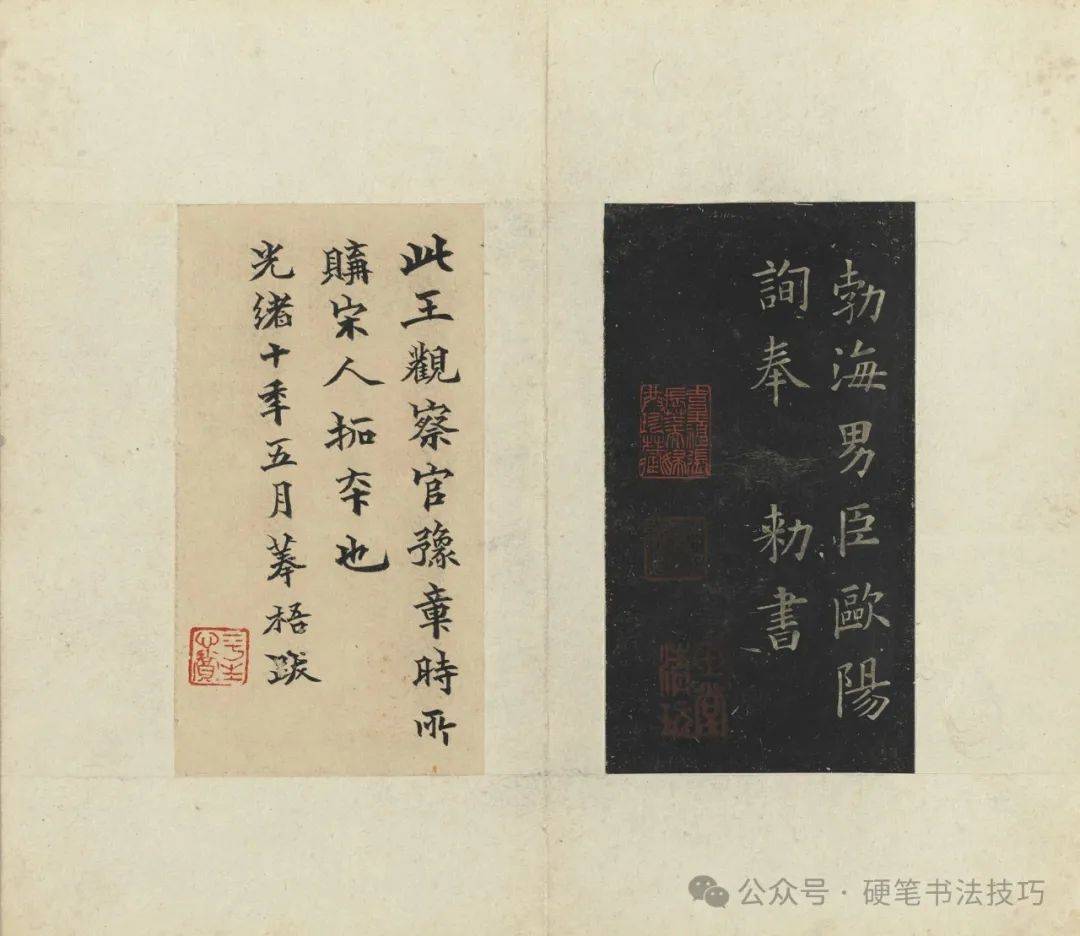 勃海男臣歐陽
詢奉 勅書
此王觀察官豫章時所
購宋人拓夲也
光緒十年五月摹梧跋
公众号·硬笔书法技巧